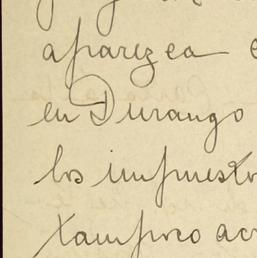 aparezca
en Durango
los impuesto
tampoco ac